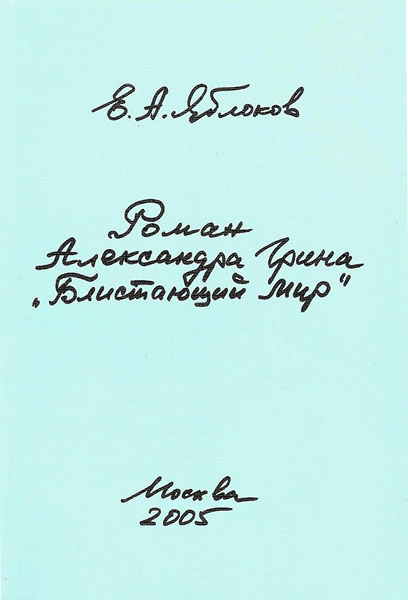 Е. А. Яблоков
Роман
Александра Грина
„Блистающий мир"
Москва
2005